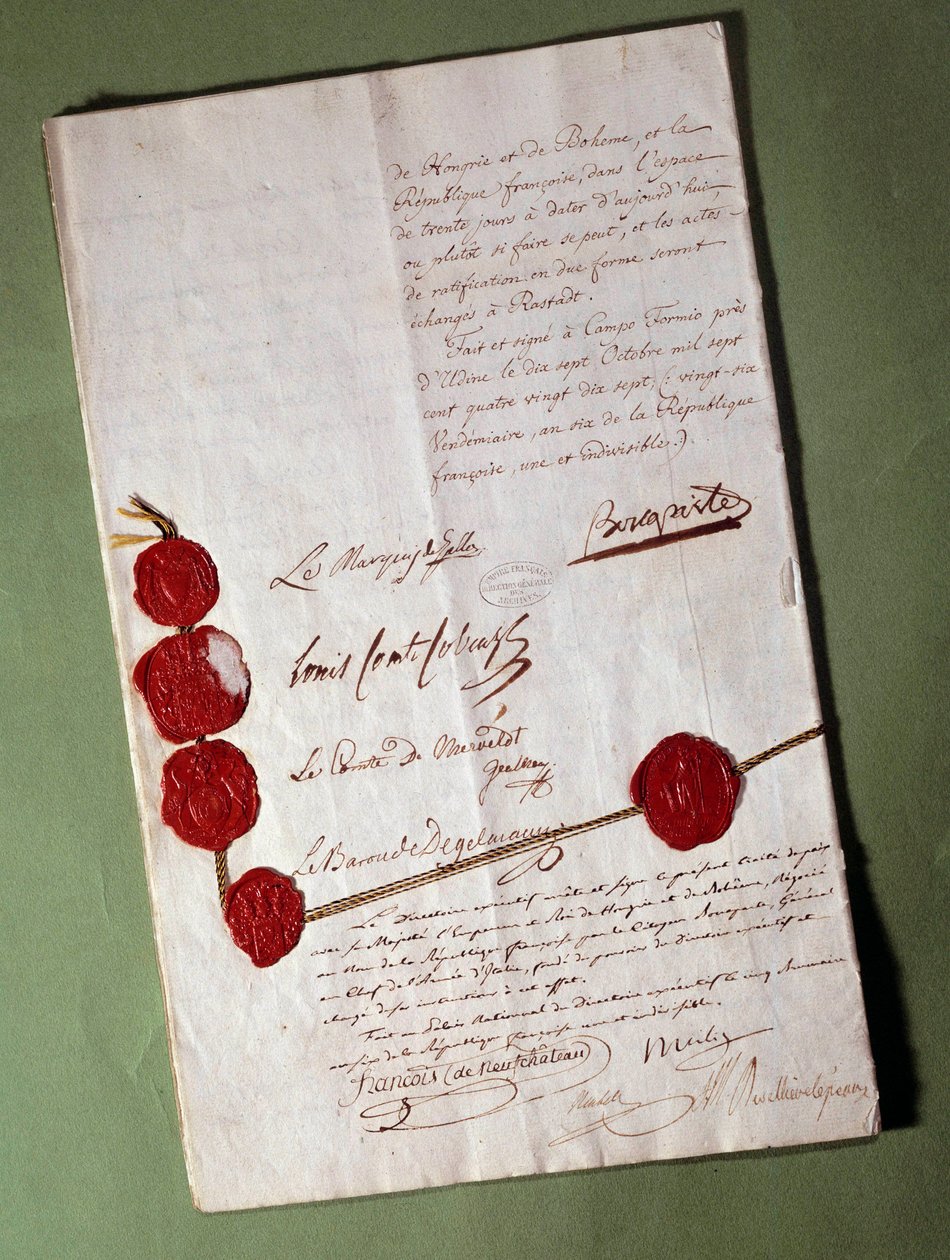 de Hongrie et de Boheme, et la
République françoise, dans l'espace
de trente jours à dater d'aujourd'hui,
ou plutôt si faire se peut, et les actes
de ratification en due forme seront
échangés à Rastadt.
Fait et signé à Campo Formio près
d'Udine le dix sept Octobre mil sept
cent quatre vingt dix sept, (: vingt-six
Vendémiaire, an six de la République
françoise, une et indivisible :)
Bonaparte
Le Marquis de Gallo
EMPIRE FRANÇAIS
DIRECTION GÉNÉRALE
DES
ARCHIVES.
Louis Comte Cobenzl
Le Comte De Merveldt
Le Baron de Degelmann
Le Directoire exécutif arrête et signe le présent traité de paix
avec sa Majesté l'Empereur et Roi de Hongrie et de Bohême, Négocié
au Nom de la République française par le Citoyen Bonaparte, Général
en Chef de l'Armée d'Italie, fondé de pouvoirs du Directoire exécutif et
chargé de ses instructions à cet effet.
Fait au Palais National du Directoire exécutif le cinq Brumaire
an six de la République française une et indivisible.
François (de Neufchâteau)
Merlin
Rewbell
LM Revelliere Lépeaux